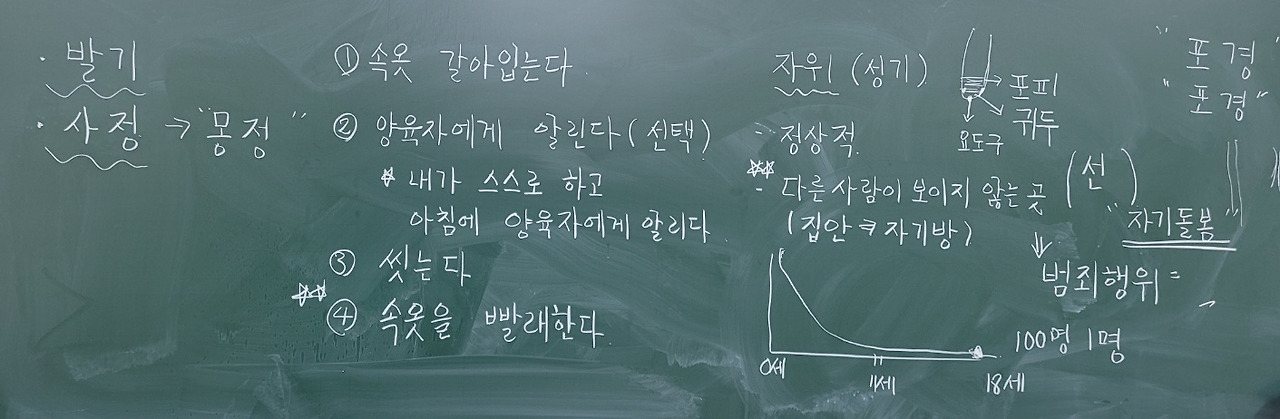 · 발기
· 사정 → "몽정"
① 속옷 갈아입는다.
② 양육자에게 알린다 (선택)
☆ 내가 스스로 하고
아침에 양육자에게 알리다.
③ 씻는다
☆☆ ④ 속옷을 빨래한다.
자위 (성기)
- 정상적.
☆☆ - 다른 사람이 보이지 않는 곳
(집안 자기방)
⇓
범죄행위
포피
귀두
요도구
0세
18세
100명 1명
"포경"
"포경"
(선 )
"자기돌봄"